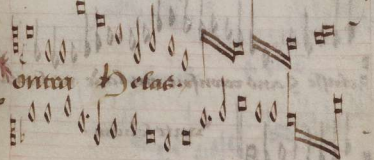 Contra Helas.